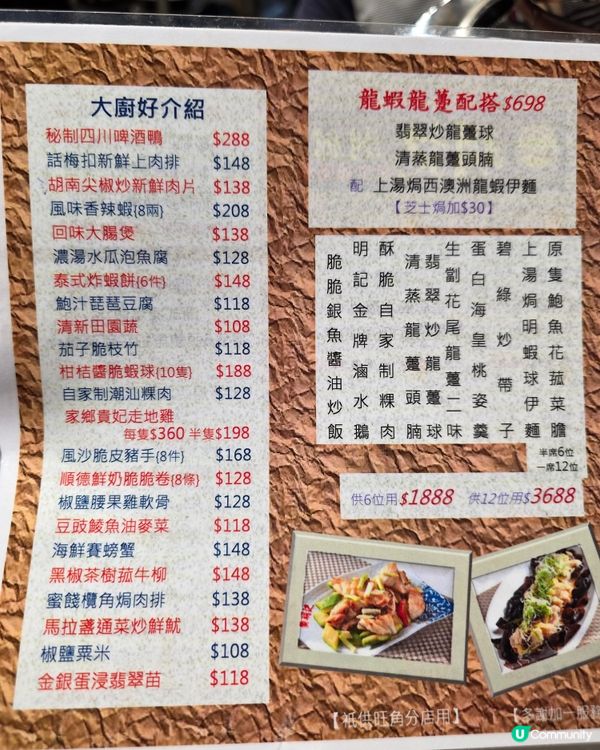 大廚好介紹
秘制四川啤酒鴨 $288
話梅扣新鮮上肉排 $148
胡南尖椒炒新鮮肉片 $138
風味香辣蝦{8兩} $208
回味大腸煲 $138
濃湯水瓜泡魚腐 $128
泰式炸蝦餅{6件} $148
鮑汁琵琶豆腐 $118
清新田園蔬 $108
茄子脆枝竹 $118
柑桔醬脆蝦球{10隻} $188
自家制潮汕粿肉 $128
家鄉貴妃走地雞
每隻$360 半隻$198
風沙脆皮豬手{8件} $168
順德鮮奶脆脆卷{8條} $128
椒鹽腰果雞軟骨 $128
豆豉鯪魚油麥菜 $118
海鮮賽螃蟹 $148
黑椒茶樹菰牛柳 $148
蜜餞欖角焗肉排 $138
馬拉盞通菜炒鮮魷 $138
椒鹽粟米 $108
金銀蛋浸翡翠苗 $118
龍蝦龍躉配搭$698
翡翠炒龍躉球
清蒸龍躉頭腩
配 上湯焗西澳洲龍蝦伊麵
【芝士焗加$30】
原隻鮑魚花菰菜膽
上湯焗明蝦球伊麵
碧綠炒帶子
蛋白海皇桃姿羹
生劏花尾龍躉二味
翡翠炒龍躉球
清蒸龍躉頭腩
酥脆自家制粿肉
明記金牌滷水鵝
脆脆銀魚醬油炒飯
半席6位
一席12位
供6位用$1888 供12位用$3688
【祇供旺角分店用】
【多謝加一服務
U Community